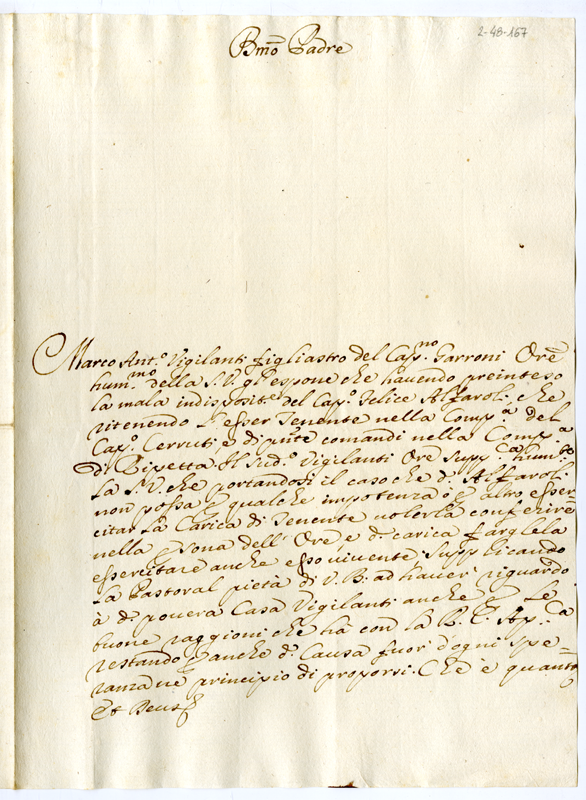 2-48-167
Bmõ Padre
Marco Ant.º Vigilanti figliastro del Cap.no Garroni Orẽ
hum.mo della S.V. gl'espone che havendo preinteso
la mala indisposit.e del Cap.º Felice Alfaroli, che
ritenendo l'esser Tenente nella Comp.a del
Cap.º Cerruti, e di pñte comandi nella Comp.a
di Ripetta. Il Sud.º Vigilanti Orẽ supp.ca hum.te
la S.V. che portandosi il caso che d.º Alfaroli
non possa p qualche impotenza ò p altro esser-
citar la Carica di Tenente volerla conferire
nella p sona dell'Orẽ e d.a carica farglela
essercitare anche esso vivente supplicando
la Pastoral pietà di V.B. ad haver riguardo
à d.a povera Casa Vigilanti anche p le
buone raggioni che hà con la R.C. Ap.ca
restando p anche d.a Causa fuor d'ogni spe=
ranza nè principio di proporsi. Che è quanto
Et Deus